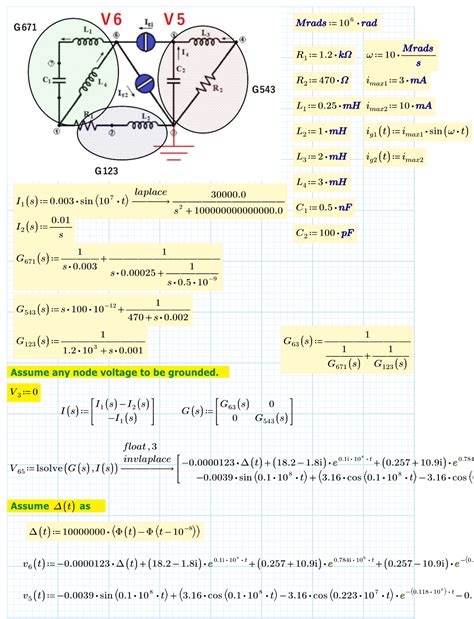 V6 V5
G671
L₁
I_g1
L₃
C₁
L₄
I₄
C₂
R₂
I_g2
G543
R₁
L₂
G123
Mrads := 10⁶ · rad
R₁ := 1.2 · kΩ ω := 10 · Mrads/s
R₂ := 470 · Ω i_max1 := 3 · mA
L₁ := 0.25 · mH i_max2 := 10 · mA
L₂ := 1 · mH i_g1(t) := i_max1 · sin(ω · t)
L₃ := 2 · mH i_g2(t) := i_max2
L₄ := 3 · mH
C₁ := 0.5 · nF
C₂ := 100 · pF
I₁(s) := 0.003 · sin(10⁷ · t) laplace → 30000.0/(s² + 100000000000000.0)
I₂(s) := 0.01/s
G₆₇₁(s) := 1/(s · 0.003) + 1/(s · 0.00025 + 1/(s · 0.5 · 10⁻⁹))
G₅₄₃(s) := s · 100 · 10⁻¹² + 1/(470 + s · 0.002)
G₁₂₃(s) := 1/(1.2 · 10³ + s · 0.001)
G₆₃(s) := 1/(1/G₆₇₁(s) + 1/G₁₂₃(s))
Assume any node voltage to be grounded.
V₃ := 0
I(s) := [I₁(s) − I₂(s) −I₁(s)] G(s) := [G₆₃(s) 0 0 G₅₄₃(s)]
float, 3
invlaplace
V₆₅ := lsolve(G(s), I(s)) → [−0.0000123 · Δ(t) + (18.2 − 1.8i) · e^(0.1i · 10⁸ · t) + (0.257 + 10.9i) · e^(0.784
−0.0039 · sin(0.1 · 10⁸ · t) + (3.16 · cos(0.1 · 10⁸ · t) − 3.16 · cos(
Assume Δ(t) as
Δ(t) := 10000000 · (Φ(t) − Φ(t − 10⁻⁸))
v₆(t) := −0.0000123 · Δ(t) + (18.2 − 1.8i) · e^(0.1i · 10⁸ · t) + (0.257 + 10.9i) · e^(0.784i · 10⁶ · t) + (0.257 − 10.9i) · e^(−(0.
v₅(t) := −0.0039 · sin(0.1 · 10⁸ · t) + (3.16 · cos(0.1 · 10⁸ · t) − 3.16 · cos(0.223 · 10⁷ · t) · e^(−(0.118 · 10⁶) · t) − 0.